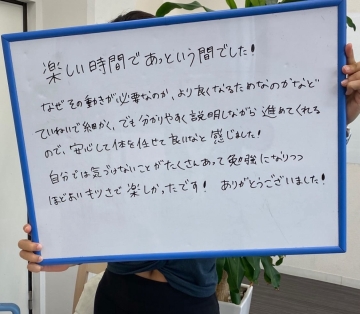 楽しい時間であっという間でした!
なぜその動きが必要なのか、より良くなるためなのかなど
ていねいで細かく、でも分かりやすく説明しながら進めてくれる
ので、安心して体を任せて良いなと感じました!
自分では気づけないことがたくさんあって勉強になりつつ
ほどよいキツさで楽しかったです! ありがとうございました!